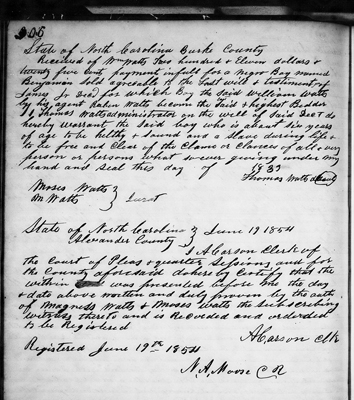 306
State of North Carolina Burke County
Received of Wm Watts Two hundred & Eleven dollars &
twenty five cent payment in full for a Negro Boy named
Benjamin Sold agreeable to the Last will & testament of
James Sr Decd for which Boy the Said William Watts
by his agent became the last & highest Bidder
I Thomas Watts administrator on the will of Said Decd do
hereby warrant the Said boy who is about Six years
of age to be helthy & Sound and a Slave during life &
to be free and Clear of the Claim or Claimes of all & every
person or persons what so ever giving under my
hand and Seal this day of 1837
Thomas Watts (Seal)
Moses Watts
M Watts Jurat
State of North Carolina June 19 1854
Alexander County
I A Carson Clerk of
the Court of Pleas & quarter Sessions and for
the County aforesaid do hereby Certify that the
within was presented before me the day
& date above written and duly proven by the oath
of Magness Watts & Moses Watts the Subscribing
witness thereto and is Recorded and orderded
to be Registered
A Carson Clk
Registered June 19th 1854
N. A. Moose C R